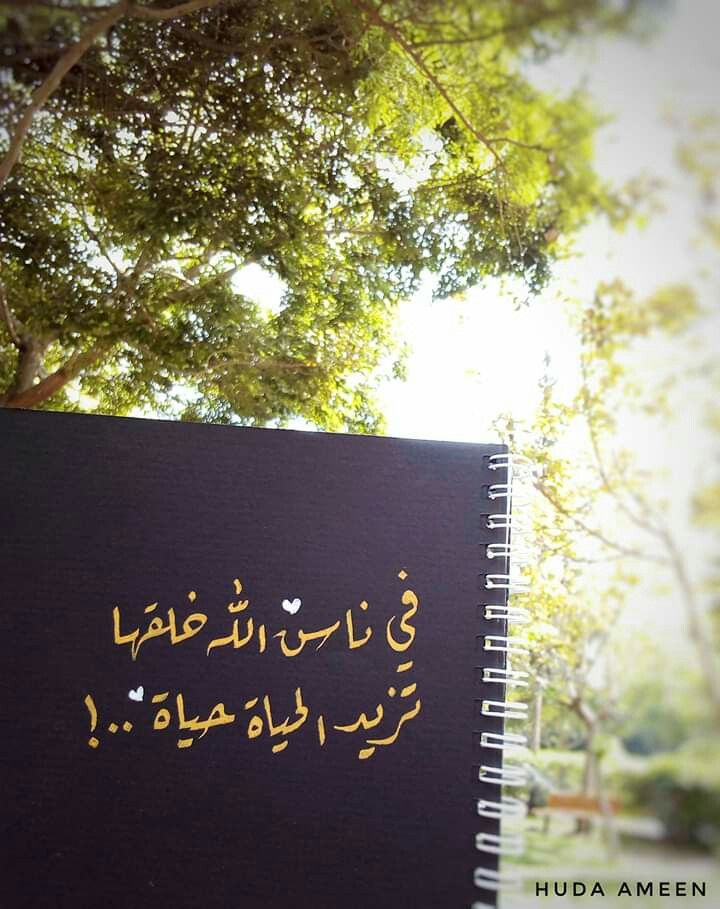 في ناس الله خلقها
تزيد الحياة حياة ..!
HUDA AMEEN